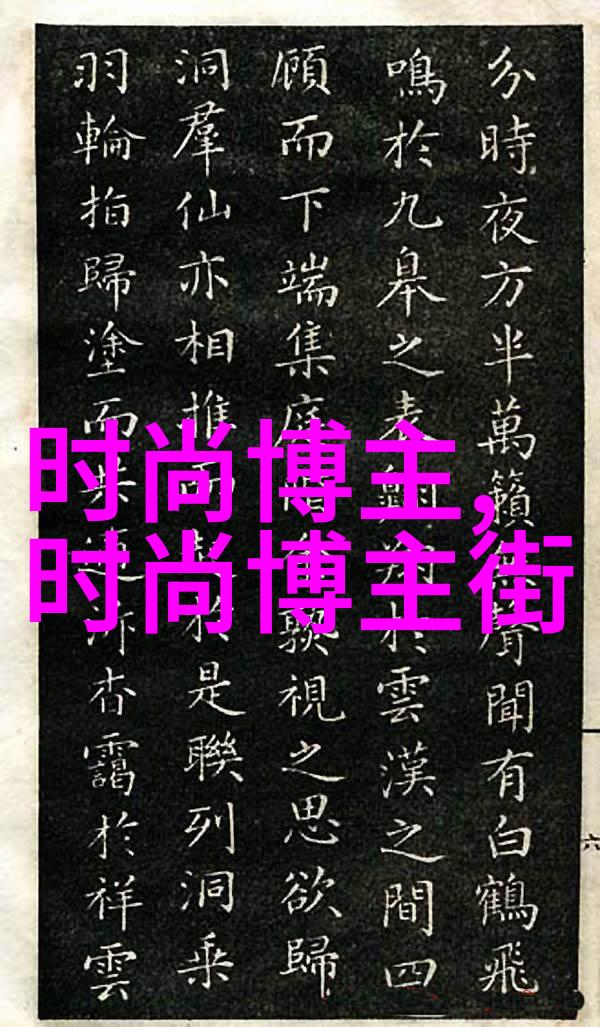 时尚博主,
时尚博主街
分時夜方半萬籟聲聞有白鶴飛
鳴於九皋之表翔於雲漢之間四
顧而下端集庭視之思欲歸
洞羣仙亦相推於是聯列洞乘
羽輪指歸塗而杳靄於祥雲
六